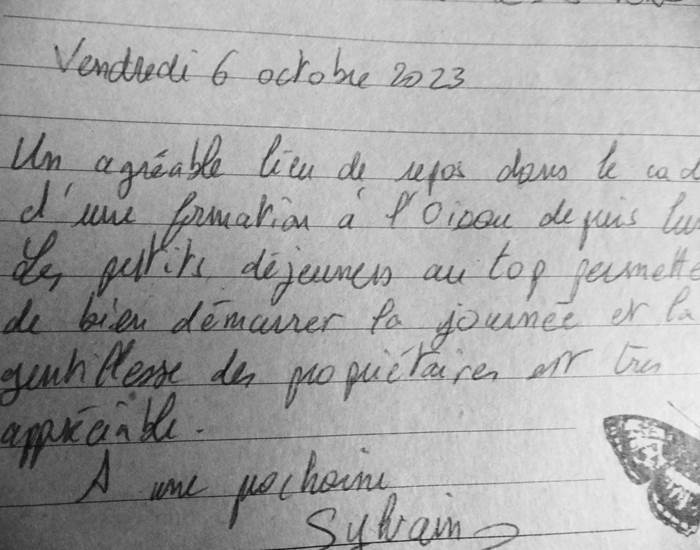 Vendredi 6 octobre 2023
Un agréable lieu de repos dans le cad
d'une formation à l'Oiseau depuis lun
Les petits déjeuners au top permette
de bien démarrer la journée et la
gentillesse des propriétaires est très
appréciable.
A une prochaine
Sylvain